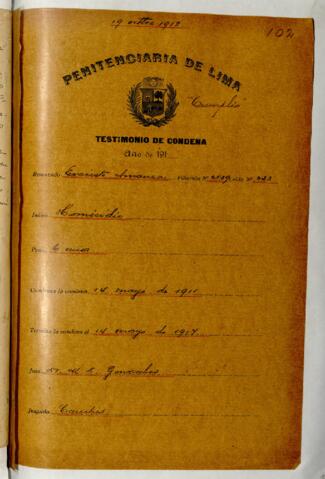 19 1912
102
PENITENCIARIA DE LIMA
Cumplió
TESTIMONIO DE CONDENA
Año de 191
Rematado Evaristo Filiación Nº celda Nº
Delito Homicidio
Pena 6 años
Comienza la condena 14 mayo de 1911
Termina la condena el 14 mayo de 1917
Juez Dr. M. E. Gonzales
Juzgado